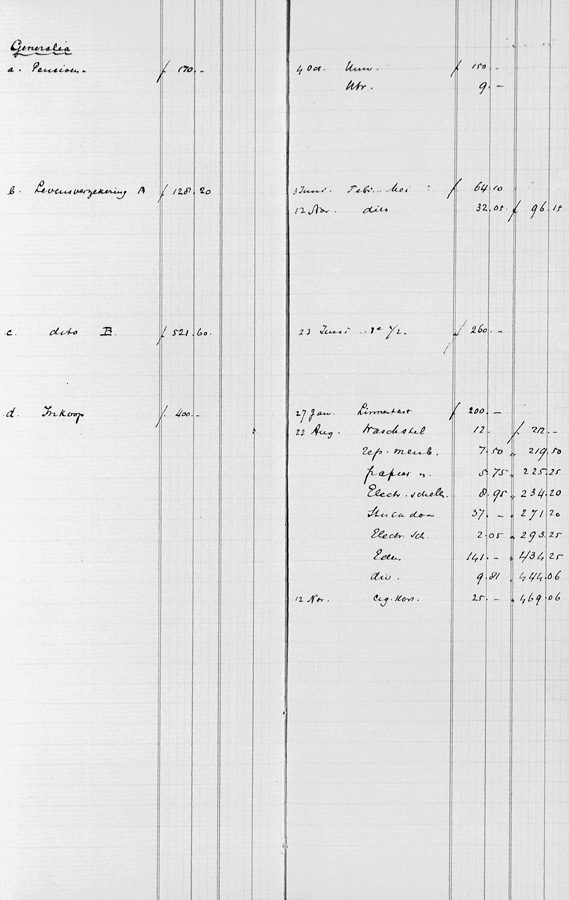 Generalia
a. Pensioen ƒ 170.- 4 Oct. Univ. ƒ 150.-
Utr. 9.-
b. Levensverzekering A ƒ 128.20 3 Juni. Febr. Mei : ƒ 64.10
12 Nov. dito 32.05 ƒ 96.15
c. dito B. ƒ 521.60 23 Juni 1/2. ƒ 260.-
d. Inkoop ƒ 400.- 27 Jan. Linnenkast ƒ 200.-
22 Aug. Waschstel 12. ƒ 212.-
rep. meub. 7.50 " 219.50
papier 5.75 " 225.25
Electr. schell. 8.95 " 234.20
Stucadoor 37.- " 271.20
Electr. sch. 2.05 " 293.25
141.- " 434.25
div. 9.81 " 444.06
12 Nov. 25.- " 469.06